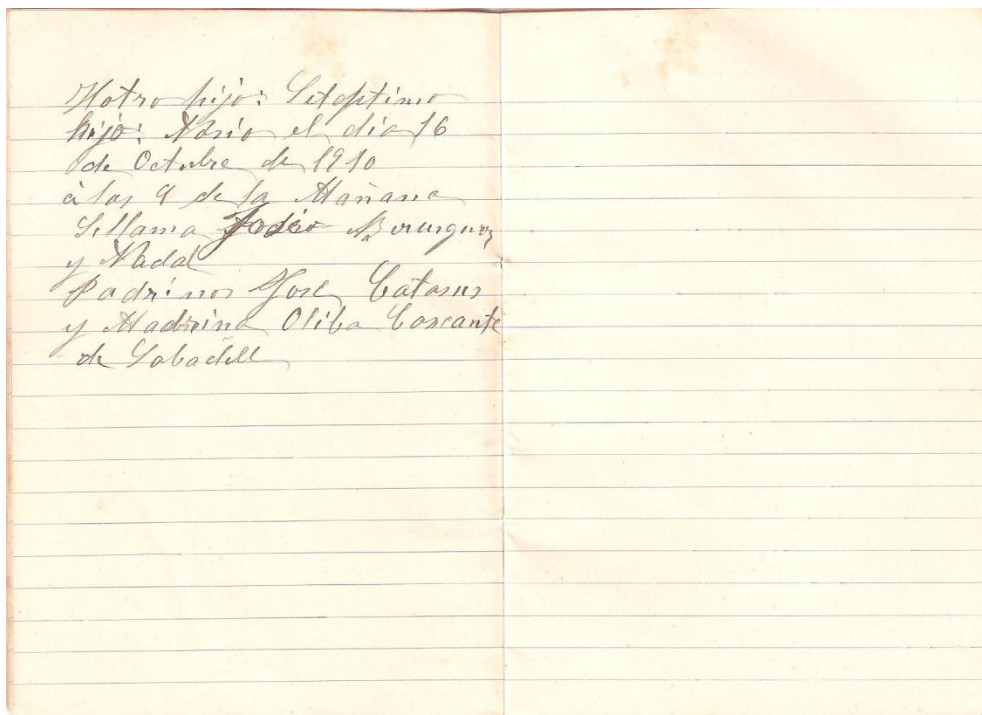 Hotro hijo: Seteptimo
hijo: Nasio el dia 16
de Octubre de 1910
à las 9 de la Mañana
Sellama Berenguer
y Nadal
Padrinos José Catasus
y Madrina Oliba Coscante
de Sabadell